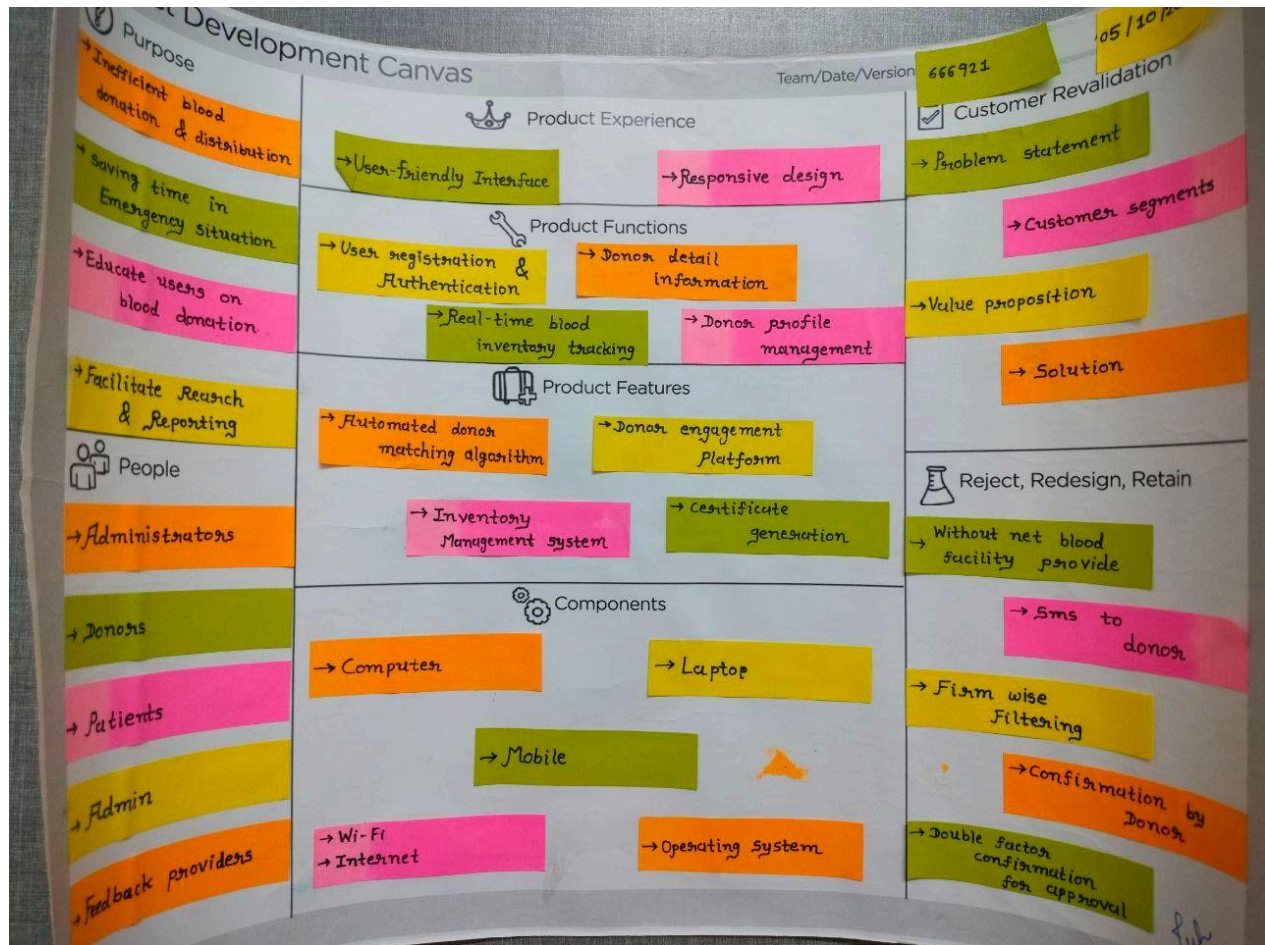 Development Canvas
Team/Date/Version
666921
05/10/20
Purpose
→ Inefficient blood
donation & distribution
→ Saving time in
Emergency situation
→ Educate users on
blood donation.
→ Facilitate Rearch
& Reporting
People
→ Administrators
→ Donors
→ Patients
→ Admin
→ Feedback providers
Product Experience
→ User-friendly Interface
→ Responsive design
Product Functions
→ User registration &
Authentication
→ Donor detail
information
→ Real-time blood
inventory tracking
→ Donor profile
management
Product Features
→ Automated donor
matching algorithm
→ Donor engagement
Platform
→ Inventory
Management system
→ Certificate
generation
Components
→ Computer
→ Laptop
→ Mobile
→ Wi-Fi
→ Internet
→ Operating System
Customer Revalidation
→ Problem statement
→ Customer segments
→ Value proposition
→ Solution
Reject, Redesign, Retain
→ Without net blood
facility provide
→ Sms to
donor
→ Firm wise
Filtering
→ Confirmation by
Donor
→ Double factor
confirmation
for approval